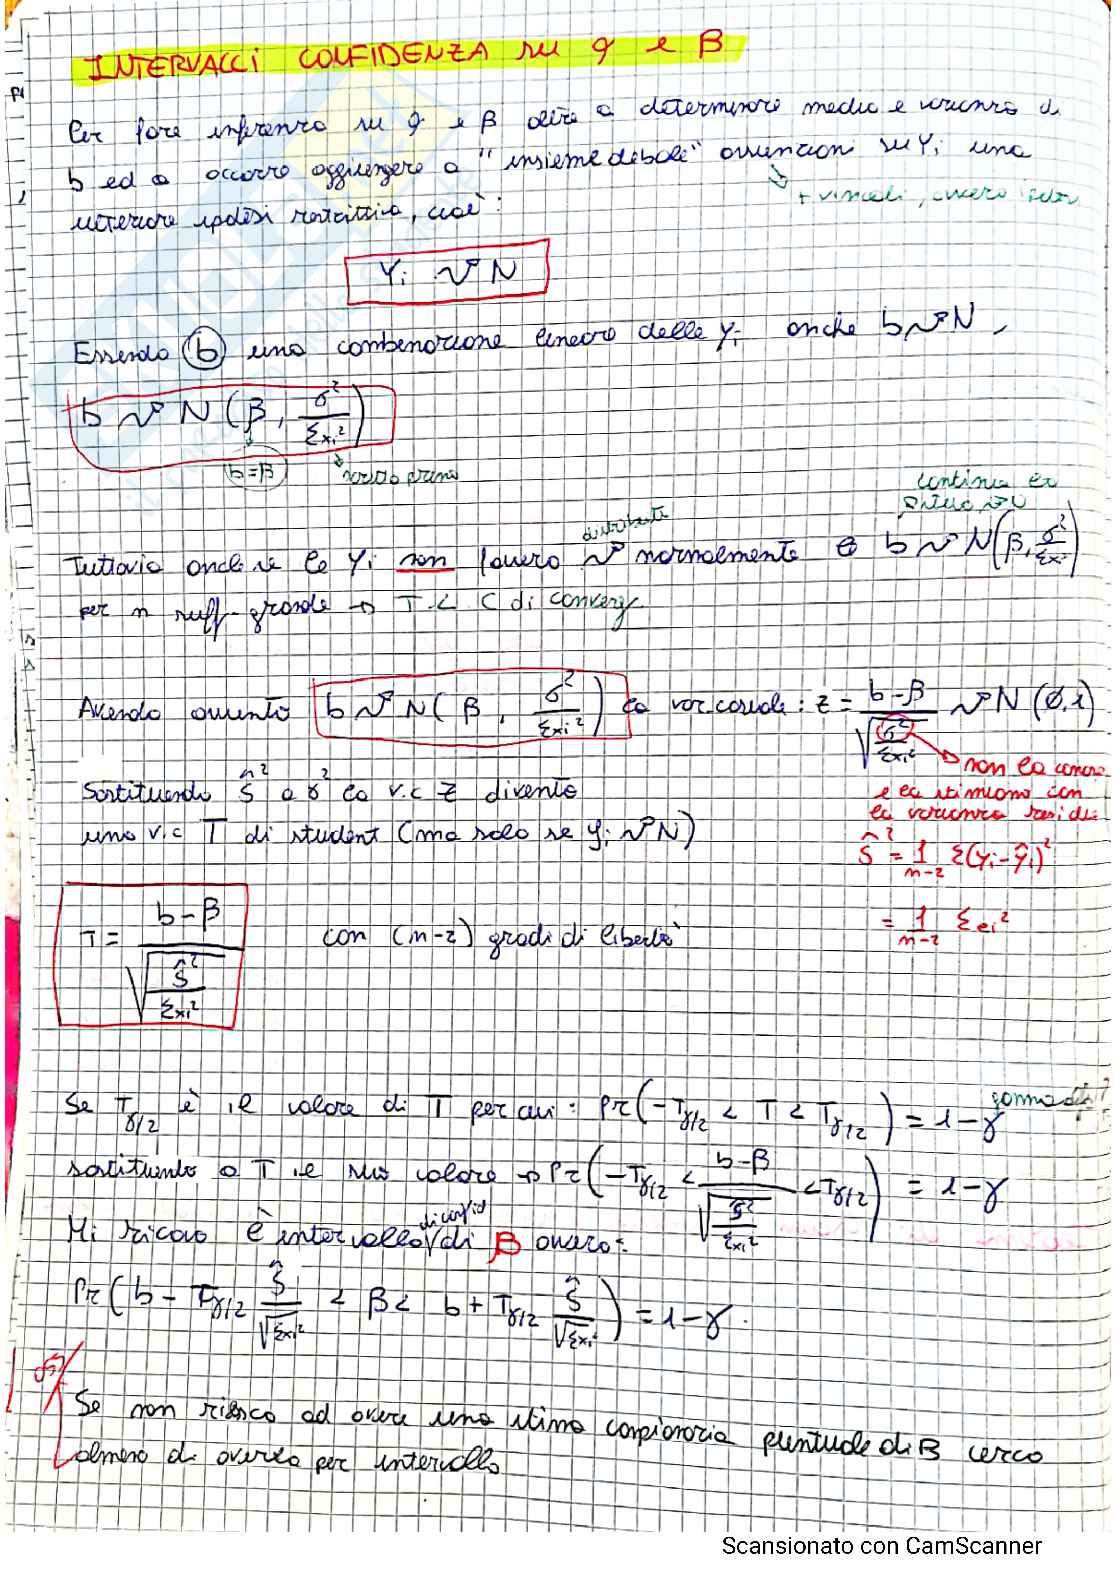 INTERVALLI CONFIDENZA su α e β
Per fare inferenza su α e β oltre a determinare media e varianza di
b ed a occorre aggiungere a "insieme debole" assunzioni su Yi una
+ vincoli, ovvero
ulteriore ipotesi restrittiva, cioè:
Yi ~ N
Essendo b una combinazione lineare delle Yi anche b ~ N,
b ~ N (β, σ²/Σxi²)
b=β
visto prima
continua ex
distribuite
Tuttavia anche se le Yi non fossero ~ normalmente b ~ N(β, σ²/Σxi²)
per n suff. grande → T L C di converg.
Avendo assunto b ~ N(β, σ²/Σxi²) la var. casuale: z = (b-β)/√(σ²/Σxi²) ~ N (0,1)
non la conosco
e la stimiamo con
la varianza residua
Sostituendo ŝ² a σ² la v.c Z diventa
una v.c T di student (ma solo se Yi ~ N)
ŝ² = 1/(n-2) Σ(yi-ŷi)²
= 1/(n-2) Σei²
T = (b-β)/√(ŝ²/Σxi²) con (n-2) gradi di libertà
Se Tγ/2 è il valore di T per cui: Pr(-Tγ/2 < T < Tγ/2) = 1-γ
gamma
sostituendo a T il suo valore → Pr(-Tγ/2 < (b-β)/√(ŝ²/Σxi²) < Tγ/2) = 1-γ
di confid
Mi ricavo l'intervallo di β ovvero:
Pr(b - Tγ/2 ŝ/√Σxi² < β < b + Tγ/2 ŝ/√Σxi²) = 1-γ.
Se non riesco ad avere una stima campionaria puntuale di β cerco
almeno di averla per intervallo
Scansionato con CamScanner